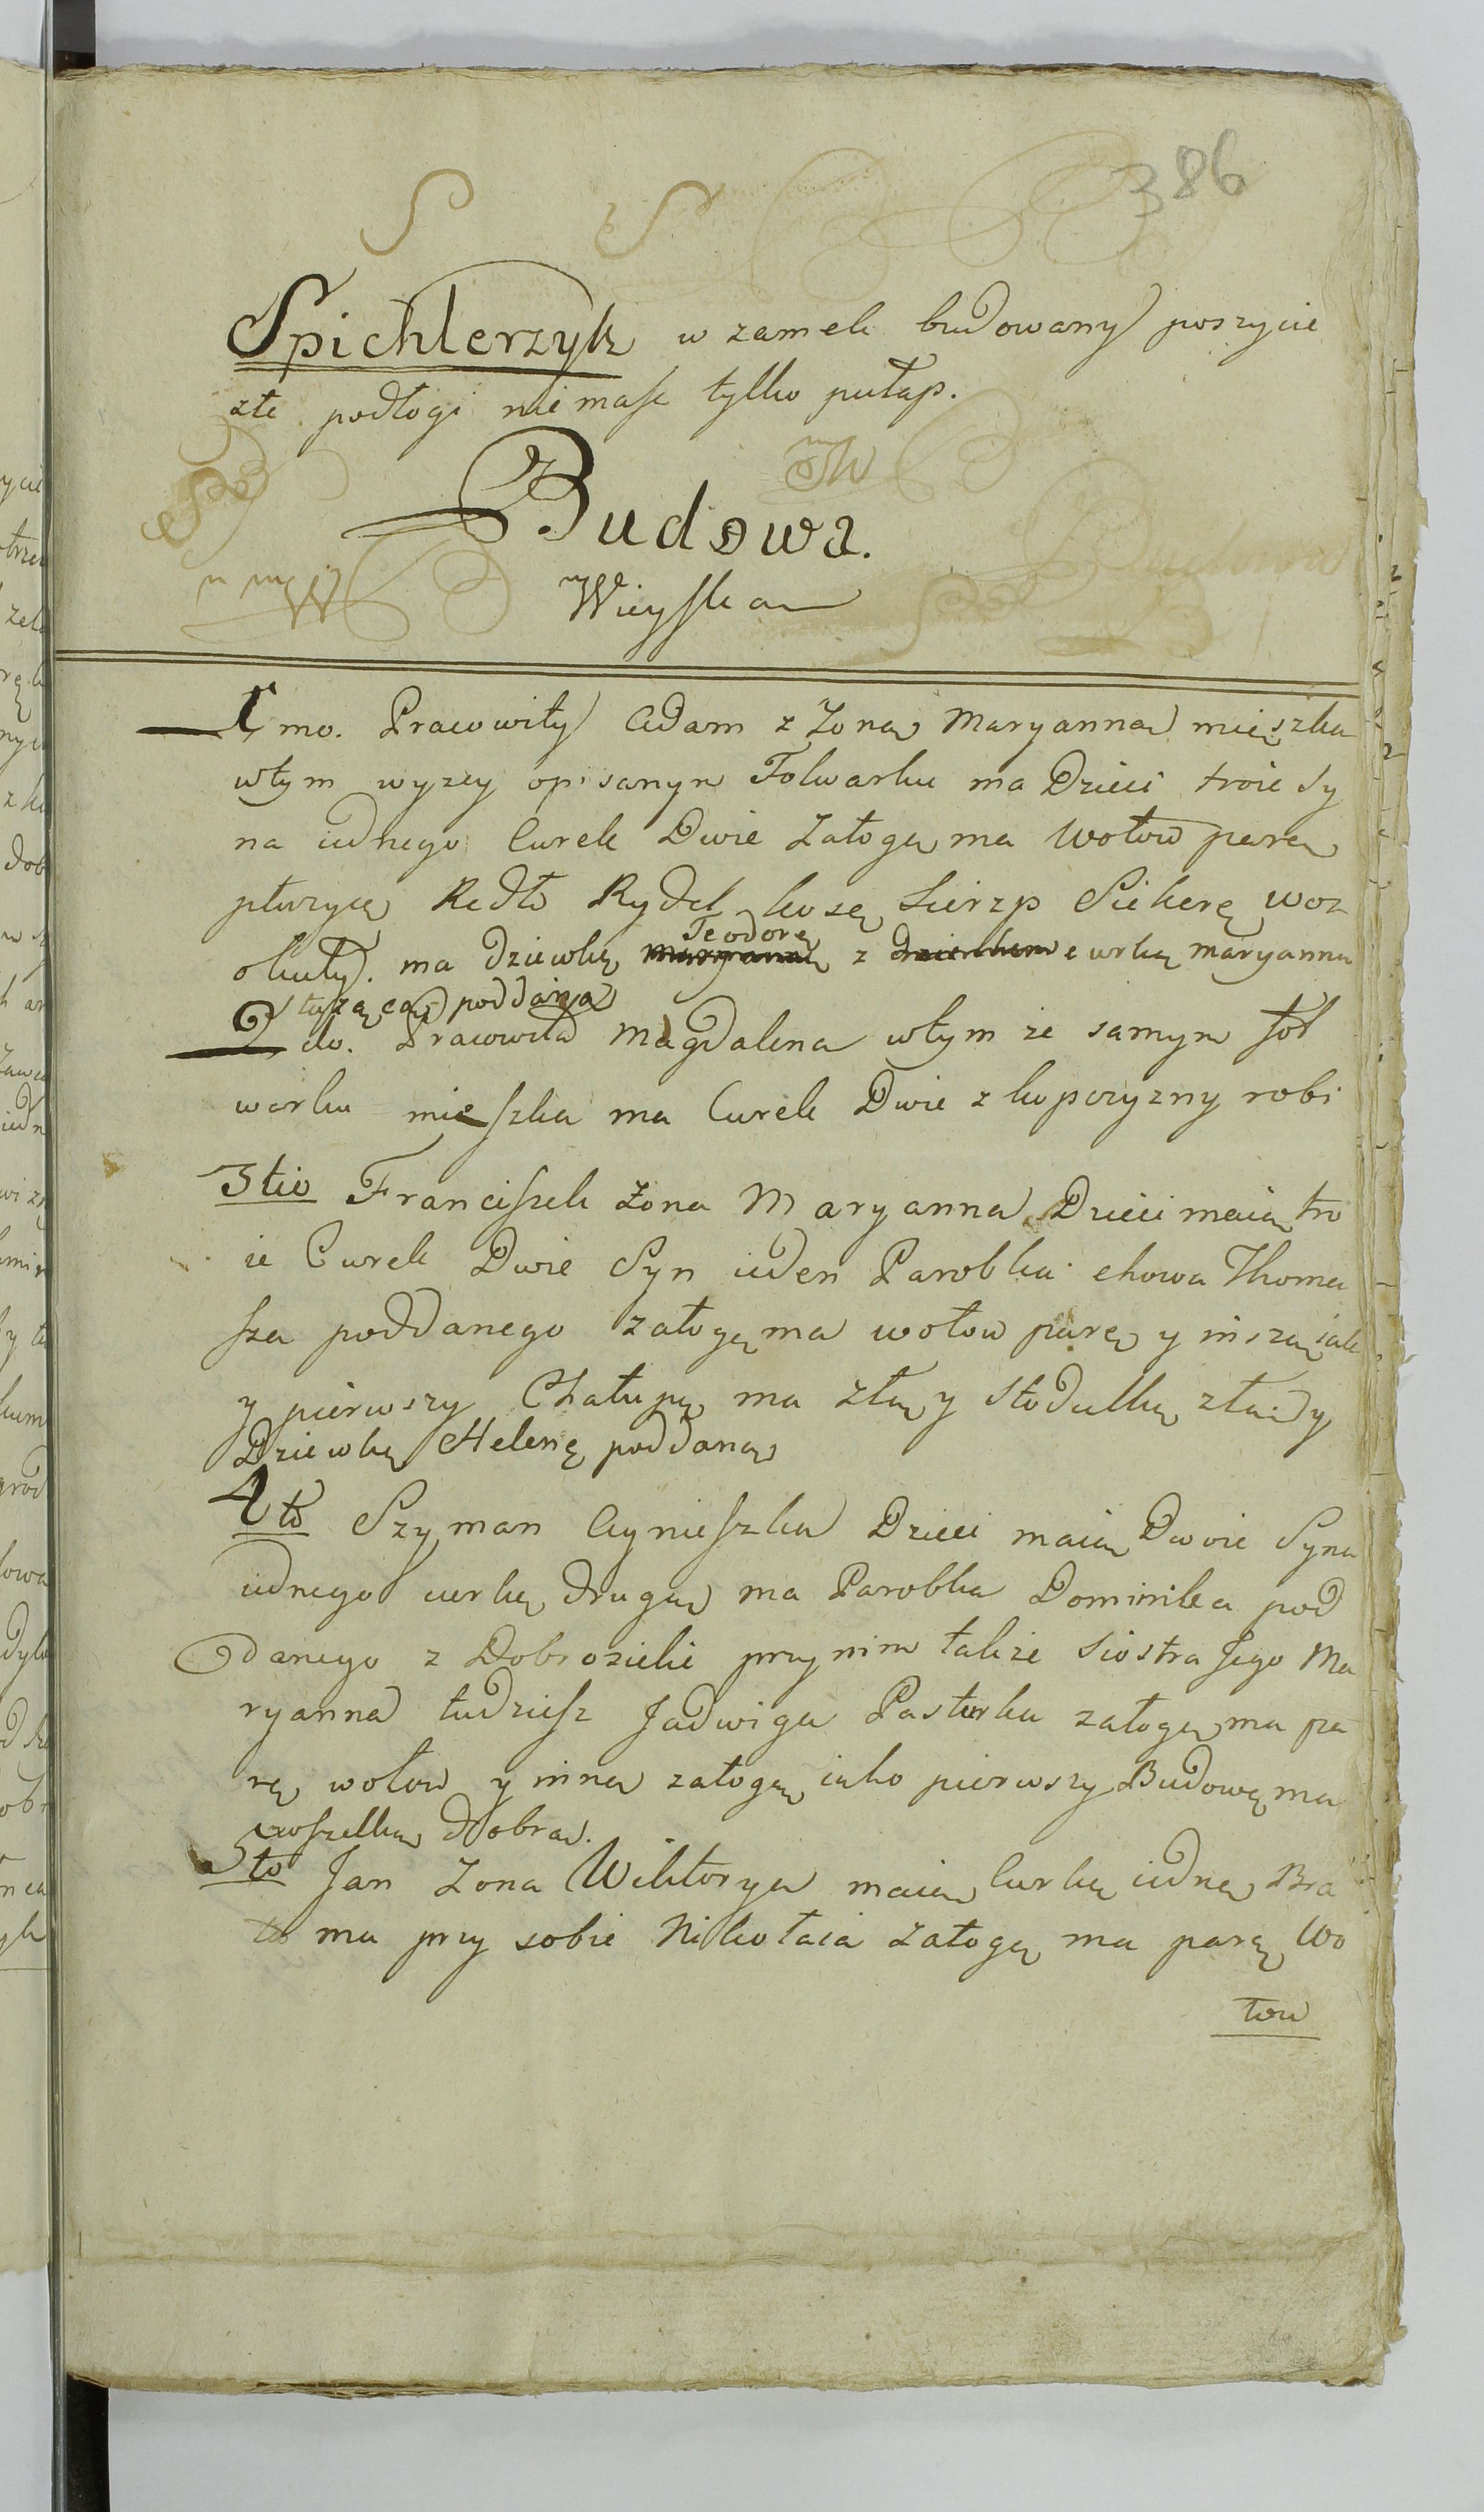 386
Spichlerzyk w zamek budowany poszycie
złe podłogi nie masz tylko pułap.
Budowa.
Wieyska
1mo. Pracowity Adam z Zoną Maryanną mięszka
wtym wyzey opisanym Folwarku ma Dzieci troie Sy
na iednego Curek Dwie Załogę ma Wołow parę
płuzycę Radło Rydel kosę Sierzp Siekerę woz
okuty. ma dziewkę Teodorę z curką maryanną
służącą poddana
2do. Pracowita Magdalena wtym ze samym fol
warku mieszka ma Curek Dwie z kupczyzny robi
3tio Franciszek Zona Maryanna Dzieci maią tro
ie Curek Dwie Syn ieden Parobka chowa Thoma
sza poddanego załogę ma wołow parę y inszą iak
y pierwszy Chałupę ma złą y stodułkę złą y
Dziewkę Helenę poddaną
4to Szyman Agnieszka Dzieci maią Dwoie Syna
iednego curkę drugą ma Parobka Dominika pod
danego z Dobrozielic przy nim takze Siostra Jego Ma
ryanna tudziesz Jadwiga Pasturka załogę ma pa
rę wołow y inną załogę iako pierwszy Budowę ma
wszelką dobrą.
5to Jan Zona Wiktorya maią Curkę iedną Bra
ta ma przy sobie Mikołaia Załogę ma parę Wo
łow